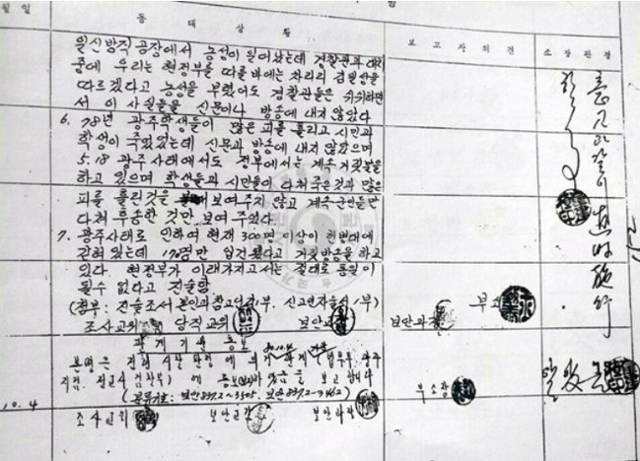 월일
동태상황
보고자의견
소장판정
일신방직 공장에서 농성이 일어났는데 경찰관과 대치
중에 우리는 현정부를 따를 바에는 차라리 김일성을
따르겠다고 농성을 부렸어도 경찰관들은 쉬쉬하면
서 이 사실들을 신문이나 방송에 내지 않았다
6. 78년 광주학생들이 많은 피를 흘리고 시민과
학생이 죽었었는데 신문과 방송에 내지 않았으며
5.18 광주사태에서도 정부에서는 계속 거짓말을
하고 있으며 학생들과 시민들이 다쳐 죽은것과 많은
피를 흘린것을 보여 주지 않고 계속 군인들만
다쳐 후송한 것만 보여 주었다.
7. 광주사태로 인하여 현재 300명 이상이 헌병대에
갇혀 있는데 170명만 입건됐다고 거짓방송을 하고
있다. 현정부가 이래가지고서는 절대로 통일이
될수 없다고 진술함
(첨부: 진술조서 본인과 참고인 각 1부. 신고인자술서 1부)
조사교위 당직교위 보안과장 부소장
관계기관 통보
본명은 의거 관계
지검. 검찰부) 에 통보 하였음을 보고합니다
(문서번호: 보안 837.2~3505. 보안 837.2-3462)
10.4
조사교위 보안과장 부소장